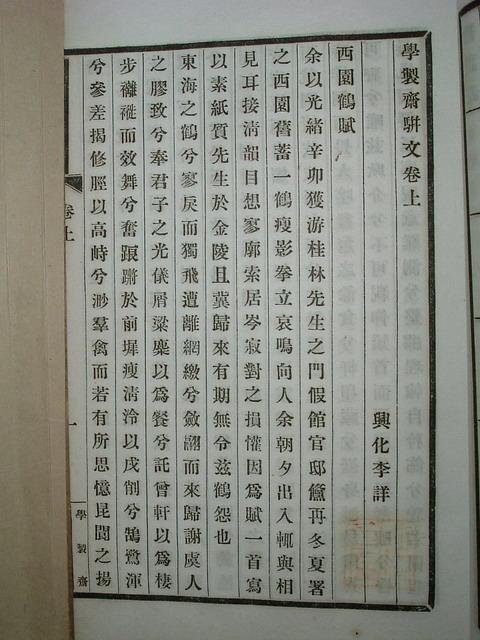 學製齋駢文卷上
興化李詳
西園鶴賦
余以光緒辛卯獲游桂林先生之門假館官邸儵再冬夏署
之西園舊蓄一鶴瘦影拳立哀鳴向人余朝夕出入輒與相
見耳接清韻目想寥廓索居岑寂對之損懽因爲賦一首寫
以素紙質先生於金陵且冀歸來有期無令茲鶴怨也
東海之鶴兮寥戾而獨飛遭離網繳兮斂翮而來歸謝虞人
之膠致兮奉君子之光儀屑粱麋以爲餐兮託曾軒以爲棲
步襳褷而效舞兮奮踉蹡於前墀瘦清泠以戌削兮鵠鷺渾
兮參差揭修脛以高峙兮渺羣禽而若有所思憶昆閬之揚
卷上
一
學製齋